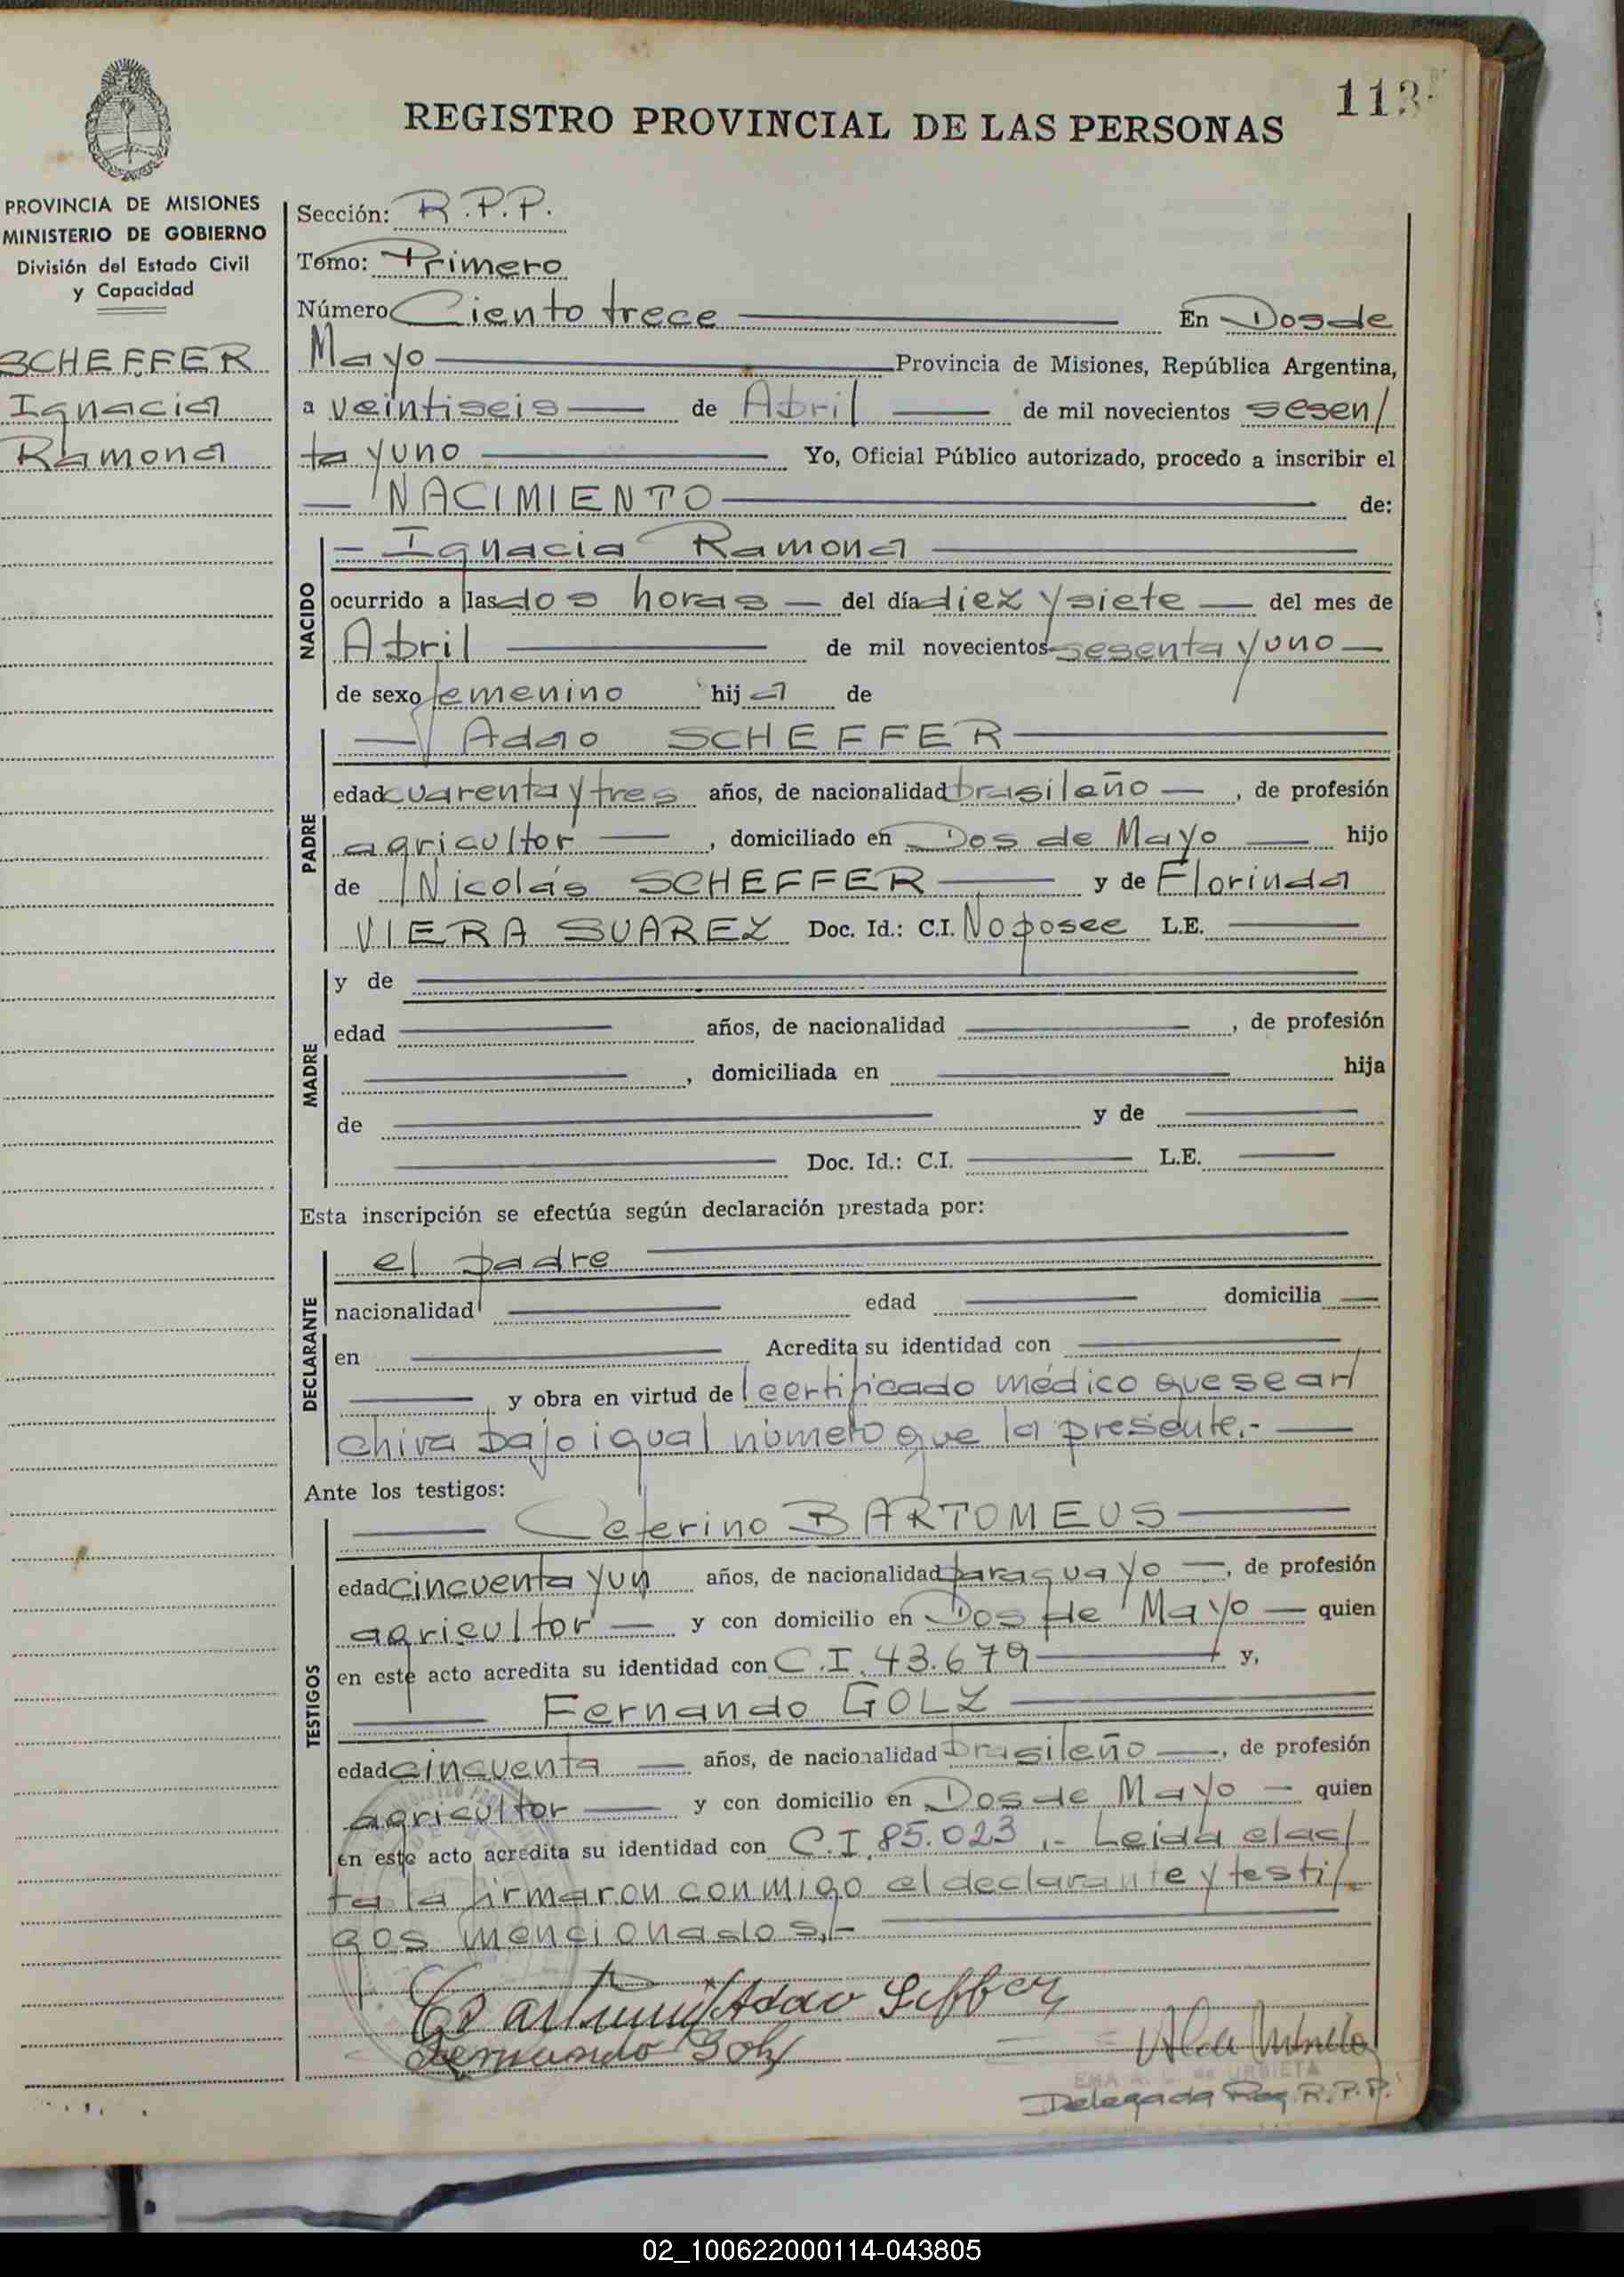 113
REGISTRO PROVINCIAL DE LAS PERSONAS
PROVINCIA DE MISIONES
MINISTERIO DE GOBIERNO
División del Estado Civil
y Capacidad
SCHEFFER
Ignacia
Ramona
Sección: R.P.P.
Tomo: Primero
Número Ciento trece En Dos de
Mayo Provincia de Misiones, República Argentina,
a veintiseis de Abril de mil novecientos sesen/
ta y uno Yo, Oficial Público autorizado, procedo a inscribir el
NACIMIENTO de:
NACIDO
Ignacia Ramona
ocurrido a las dos horas del día diez y siete del mes de
Abril de mil novecientos sesenta y uno
de sexo femenino hija de
PADRE
Adao SCHEFFER
edad cuarenta y tres años, de nacionalidad brasileño, de profesión
agricultor, domiciliado en Dos de Mayo hijo
de Nicolás SCHEFFER y de Florinda
VIERA SUAREZ Doc. Id.: C.I. No posee L.E.
MADRE
y de
edad años, de nacionalidad , de profesión
, domiciliada en hija
de y de
Doc. Id.: C.I. L.E.
Esta inscripción se efectúa según declaración prestada por:
DECLARANTE
el padre
nacionalidad edad domicilia
en Acredita su identidad con
y obra en virtud del certificado médico que se ar/
chiva bajo igual número que la presente.-
Ante los testigos:
TESTIGOS
Ceferino BARTOMEUS
edad cincuenta y un años, de nacionalidad paraguayo, de profesión
agricultor y con domicilio en Dos de Mayo quien
en este acto acredita su identidad con C.I. 43.679 y,
Fernando GOLZ
edad cincuenta años, de nacionalidad brasileño, de profesión
agricultor y con domicilio en Dos de Mayo quien
en este acto acredita su identidad con C.I. 85.023.- Leida el ac/
ta la firmaron conmigo el declarante y testi/
gos mencionados.-
Adao Seffer
Fernando Golz
Delegada Reg. R.P.P.
02_100622000114-043805